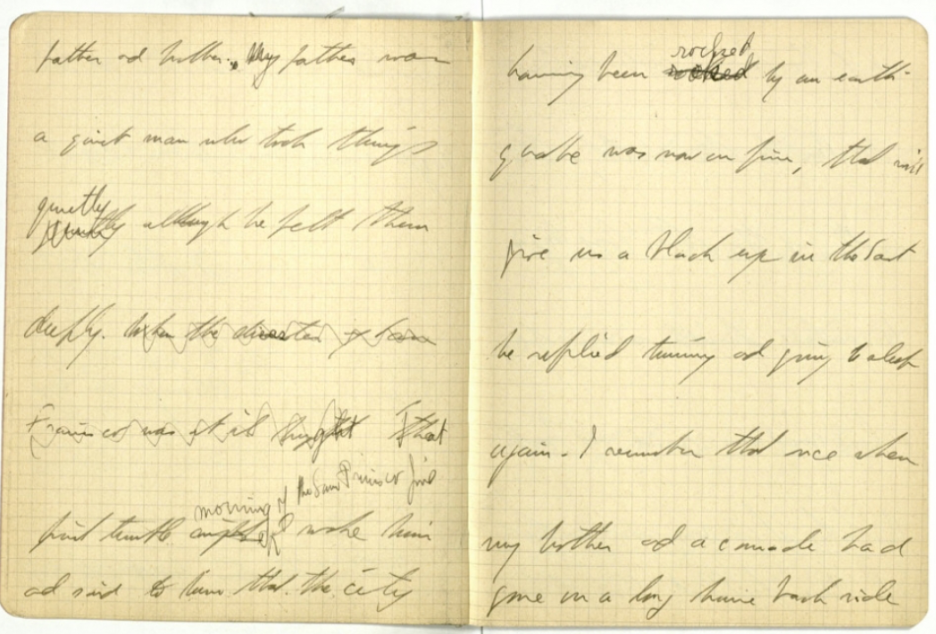 father and brother. My father was
a quiet man who took things
quietly although he felt them
deeply. When the disaster of San
Francisco was at its height That
morning of the San Francisco fire
first terrible I woke him
and said to him that the city
rocked
having been rocked by an earth
quake was now on fire, that will
give us a black eye in the East
he replied turning and going to sleep
again. I remember that once when
my brother and a comrade had
gone on a long horse back ride